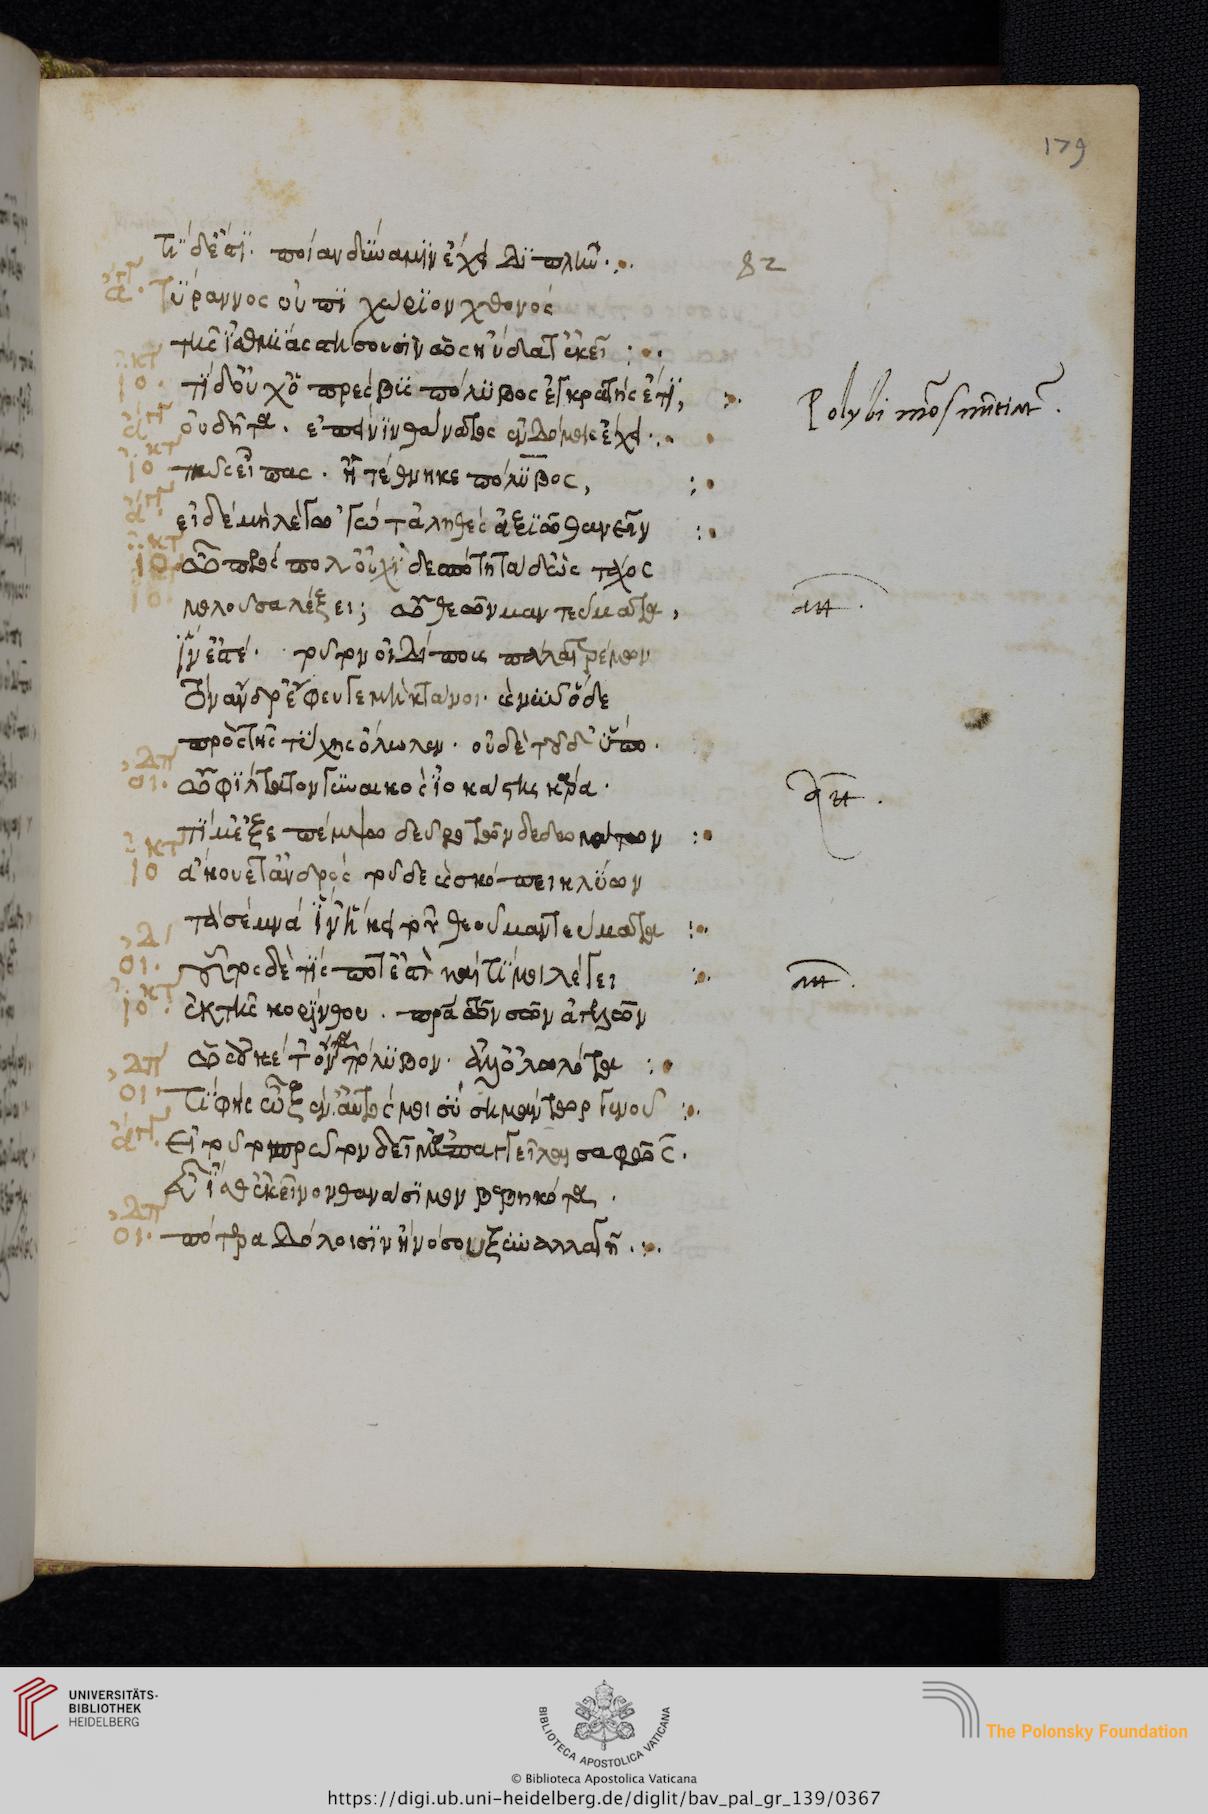 179
τί δ' ἔστι. ποίαν δύναμιν ἔχει διπλῆν.
82
ἄγγ. τύραννον οὑπιχώριοι χθονὸς
τῆς ἰσθμίας στήσουσιν ὡς ηὐδᾶτ' ἐκεῖ
ἰοκ. τί δ' οὐχ ὁ πρέσβυς πόλυβος ἐγκρατὴς ἔτι;
Polybi mors nuntiatur.
ἄγγ. οὐ δῆτα. ἐπεί νιν θάνατος ἐν δόμοις ἔχει.
ἰοκ. πῶς εἶπας. ἦ τέθνηκε πόλυβος,
ἄγγ. εἰ δὲ μὴ λέγω 'γὼ τἀληθές ἀξιῶ θανεῖν
ἰοκ. ὦ πρόσπολ' οὐχὶ δεσπότῃ τάδ' ὡς τάχος
μολοῦσα λέξεις; ὦ θεῶν μαντεύματα,
ἵν' ἐστέ. τοῦτον οἰδίπους πάλαι τρέμων
τὸν ἄνδρ' ἔφευγε μὴ κτάνοι. καὶ νῦν ὅδε
πρὸς τῆς τύχης ὄλωλεν. οὐδὲ τοῦδ' ὕπο.
οἰδιπ. ὦ φίλτατον γυναικὸς ἰοκάστης κάρα.
τί μ' ἐξεπέμψω δεῦρο τῶνδε δωμάτων
ἰοκτ. ἄκουε τἀνδρὸς τοῦδε καὶ σκόπει κλύων
τὰ σέμν' ἵν' ἥκει τοῦ θεοῦ μαντεύματα
οἰδι. οὗτος δὲ τίς ποτ' ἐστὶ καὶ τί μοι λέγει
ἰοκτ. ἐκ τῆς κορίνθου. πατέρα τὸν σὸν ἀγγελῶν
ὡς οὐκέτ' ὄντα πόλυβον. ἀλλ' ὀλωλότα
οἰδιπ. τί φῄς ὦ ξέν'. αὐτός μοι σὺ σημάντωρ γενοῦ
ἄγγ. εἰ τοῦτο πρῶτον δεῖ μ' ἀπαγγεῖλαι σαφῶς.
εὖ ἴσθ' ἐκεῖνον θανάσιμον βεβηκότα.
οἰδιπ. πότερα δόλοισιν ἢ νόσου ξυναλλαγῇ.
UNIVERSITÄTS-
BIBLIOTHEK
HEIDELBERG
BIBLIOTECA APOSTOLICA VATICANA
The Polonsky Foundation
© Biblioteca Apostolica Vaticana
https://digi.ub.uni-heidelberg.de/diglit/bav_pal_gr_139/0367